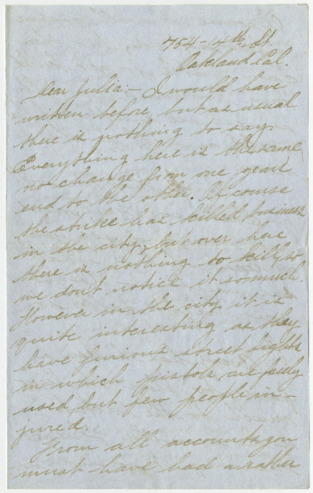 754-4th St
Oakland Cal.
Dear Julia:- I would have
written before but as usual
there is nothing to say.
Everything here is the same
no change from one year
end to the other. Of course
the strike has killed business
in the city, but over here
there is nothing to kill, so
we dont notice it so much.
However in the city it is
quite interesting as they
have furious street fights
in which pistols are freely
used but few people in-
jured.
From all accounts you
must have had a rather